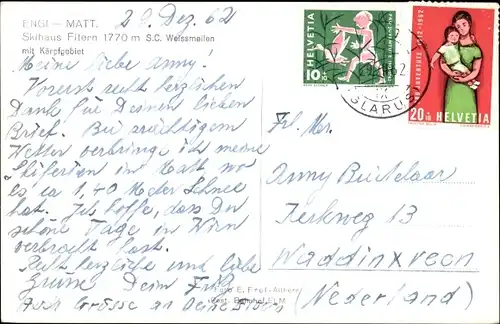 ENGI — MATT.
Skihaus Fitern 1770 m S.C. Weissmeilen
mit Kärpfgebiet
29. Dez. 62
Meine liebe Anny!
Vorerst recht herzlichen
Dank für Deinen lieben
Brief. Bei prächtigem
Wetter verbringe ich meine
Skiferien in Matt, wo
es ca 1,40 M der Schnee
hat. Ich hoffe, dass Du
schöne Tage in Wien
verbracht hast.
Recht herzliche und liebe
Grüsse Dein
Grüsse an Deine Eltern
HELVETIA
10
GLARUS
PRO JUVENTUTE 1912-1962
20+10 HELVETIA
Frl. Mej.
Anny
Kerkweg 13
Waddinxveen
(Nederland)
Foto E.
Rest. Bahnhof ELM